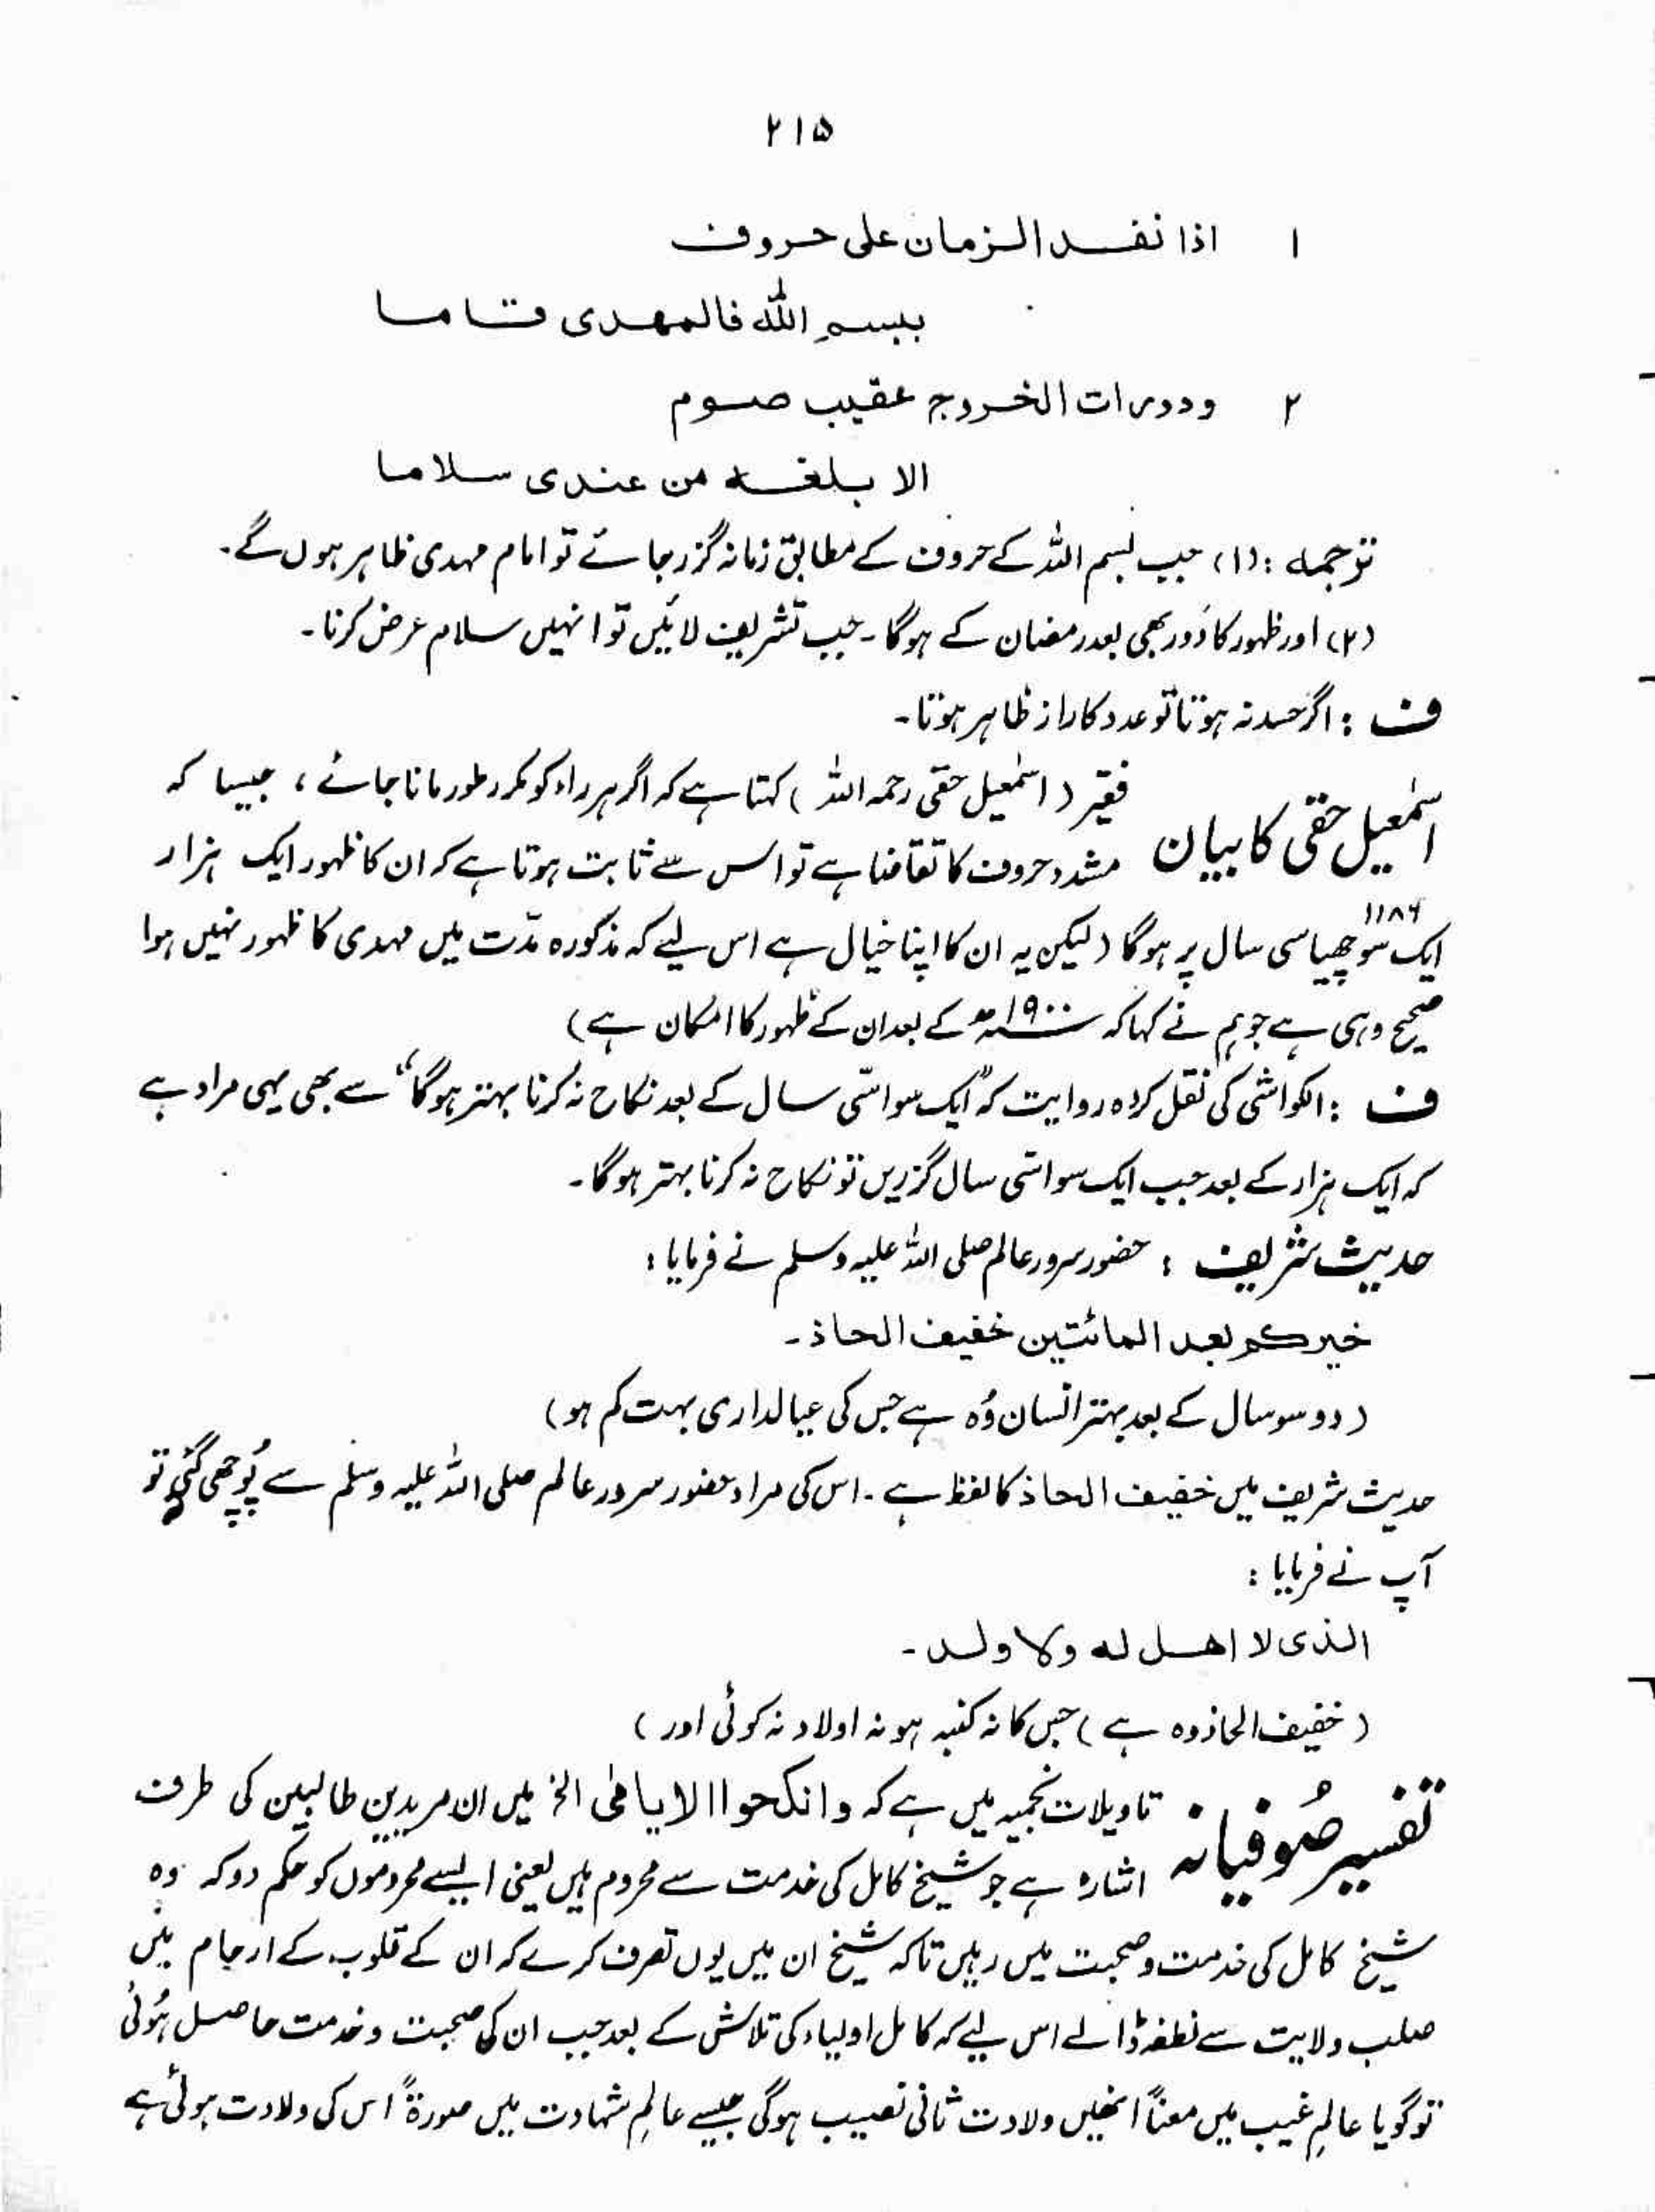 ۲۱۵
۱ اذا نفد الزمان علی حروف
ببسم اللّٰہ فالمهدی قاما
۲ ودورات الخروج عقیب صوم
الا بلغه من عندی سلاما
ترجمہ : (۱) جب بسم اللہ کے حروف کے مطابق زمانہ گزر جائے تو امام مہدی ظاہر ہوں گے۔
(۲) اور ظہور کا دَور بھی بعد رمضان کے ہوگا۔ جب تشریف لائیں تو انہیں سلام عرض کرنا۔
ف : اگر حسد نہ ہوتا تو عدد کا راز ظاہر ہوتا۔
اسمٰعیل حقی کا بیان فقیر (اسمٰعیل حقی رحمہ اللہ) کہتا ہے کہ اگر ہر راء کو مکرر طور مانا جائے ، جیسا کہ
مشدد حروف کا تقاضا ہے تو اس سے ثابت ہوتا ہے کہ ان کا ظہور ایک ہزار
۱۱۸۶
ایک سو چھیاسی سال پر ہوگا (لیکن یہ ان کا اپنا خیال ہے اس لیے کہ مذکورہ مدّت میں مہدی کا ظہور نہیں ہوا
صحیح وہی ہے جو ہم نے کہا کہ ۱۹۰۰ھ کے بعد ان کے ظہور کا امکان ہے)
ف : الکواشی کی نقل کردہ روایت کہ "ایک سو اسّی سال کے بعد نکاح نہ کرنا بہتر ہوگا" سے بھی یہی مراد ہے
کہ ایک ہزار کے بعد جب ایک سو اسّی سال گزریں تو نکاح نہ کرنا بہتر ہوگا۔
حدیث شریف : حضور سرور عالم صلی اللہ علیہ وسلم نے فرمایا :
خیرکم بعد المائتین خفیف الحاذ۔
(دو سو سال کے بعد بہتر انسان وُہ ہے جس کی عیالداری بہت کم ہو)
حدیث شریف میں خفیف الحاذ کا لفظ ہے۔ اس کی مراد حضور سرور عالم صلی اللہ علیہ وسلم سے پُوچھی گئی تو
آپ نے فرمایا :
الذی لا اهل له ولا ولد۔
(خفیف الحاذ وہ ہے) جس کا نہ کنبہ ہو نہ اولاد نہ کوئی اور)
تفسیر صُوفیانہ تاویلات نجمیہ میں ہے کہ وانکحوا الایامٰی الخ میں ان مریدین طالبین کی طرف
اشارہ ہے جو شیخ کامل کی خدمت سے محروم ہیں یعنی ایسے محروموں کو حکم دو کہ وہ
شیخ کامل کی خدمت و صحبت میں رہیں تاکہ شیخ ان میں یوں تصرف کرے کہ ان کے قلوب کے ارحام میں
صلب ولایت سے نطفہ ڈالے اس لیے کہ کامل اولیاء کی تلاش کے بعد جب ان کی صحبت و خدمت حاصل ہُوئی
تو گویا عالمِ غیب میں معناً انھیں ولادت ثانی نصیب ہوگی جیسے عالمِ شہادت میں صورۃً اس کی ولادت ہوئی ہے